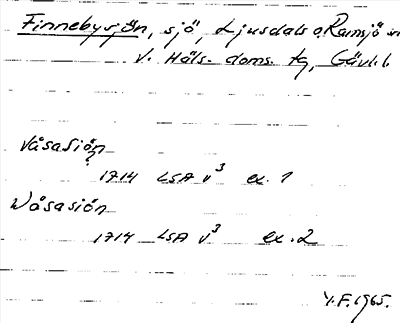 Finnebysjön, sjö, Ljusdals o. Ramsjö sn
V. Häls. doms. tg, Gävl. l.
Våsasiön
?
1714 LSA V³ ex. 1
Wåsasión
1714 LSA V³ ex. 2
Y.F. 1965.